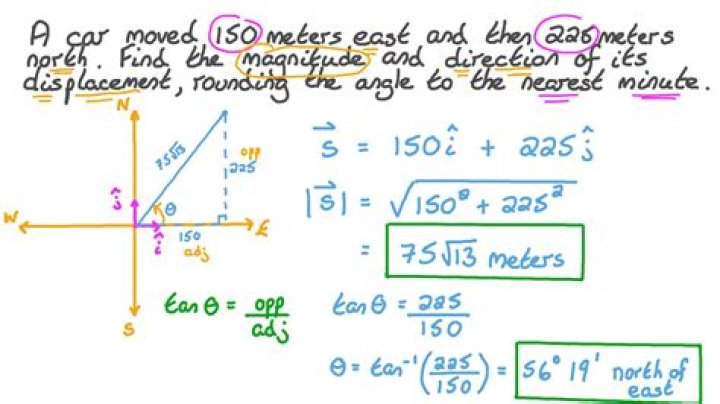 A car moved 150 meters east and then 225 meters
north. Find the magnitude and direction of its
displacement, rounding the angle to the nearest minute.
N
75√13
opp
225
ĵ
θ
W
E
î
150
adj
S
s⃗ = 150î + 225ĵ
|s⃗| = √(150² + 225²)
= 75√13 meters
tan θ = opp/adj
tan θ = 225/150
θ = tan⁻¹(225/150) = 56° 19' north of
east